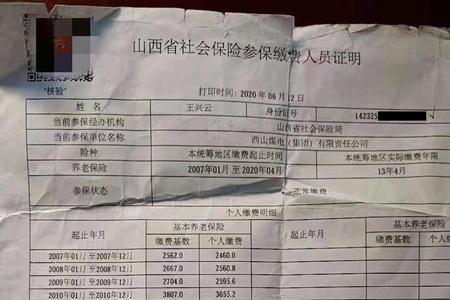 山西省社会保险参保缴费人员证明
"核验"
打印时间：2020年06月12日
姓名 王兴云 身份证号 142325
当前参保经办机构 山西省社会保险局
当前参保单位名称 西山煤电（集团）有限责任公司
险种 本统筹地区缴费起止时间 本统筹地区实际缴费年限
养老保险 2007年01月 至2020年04月 13年4月
参保状态 正常缴费
个人缴费明细
起止年月 基本养老保险 起止年月 基本养老保险
缴费基数 个人缴费 缴费基数 个人缴费
2007年01月 至2007年12月 2562.0 2460.0
2008年01月 至2008年12月 2667.0 2560.8
2009年01月 至2009年12月 2704.0 2595.6
2010年01月 至2010年12月 3807.0 3655.2